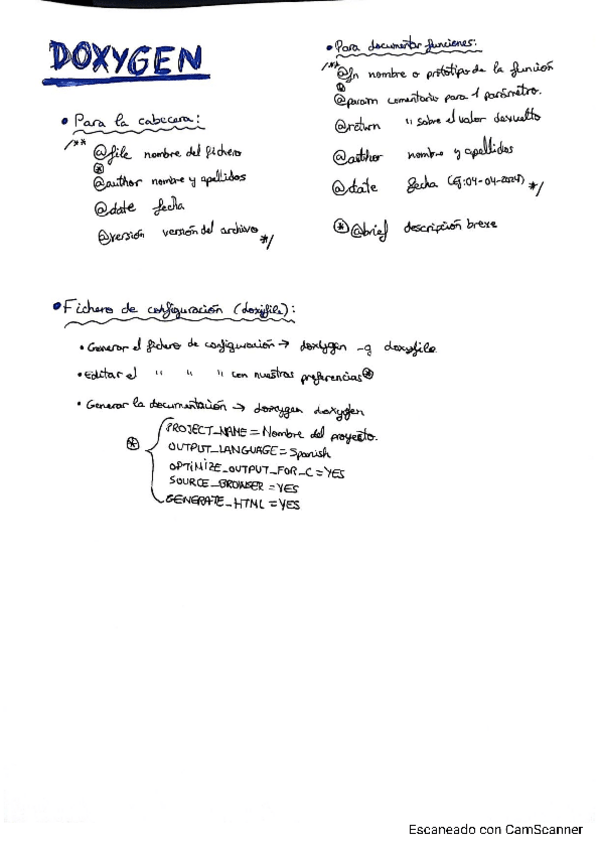 DOXYGEN
• Para la cabecera:
/**
@file nombre del fichero
*
@author nombre y apellidos
@date fecha
@versión versión del archivo */
• Para documentar funciones:
/**
@fn nombre o prototipo de la función
*
@param comentario para 1 parámetro.
@return " sobre el valor devuelto
@author nombre y apellidos
@date fecha (Ej: 04-04-2024) */
* @brief descripción breve
• Fichero de configuración (doxyfile):
• Generar el fichero de configuración → doxygen -g doxyfile.
• Editar el " " " con nuestras preferencias *
• Generar la documentación → doxygen doxygen
* PROJECT_NAME = Nombre del proyecto.
OUTPUT_LANGUAGE = Spanish
OPTIMIZE_OUTPUT_FOR_C = YES
SOURCE_BROWSER = YES
GENERATE_HTML = YES
Escaneado con CamScanner